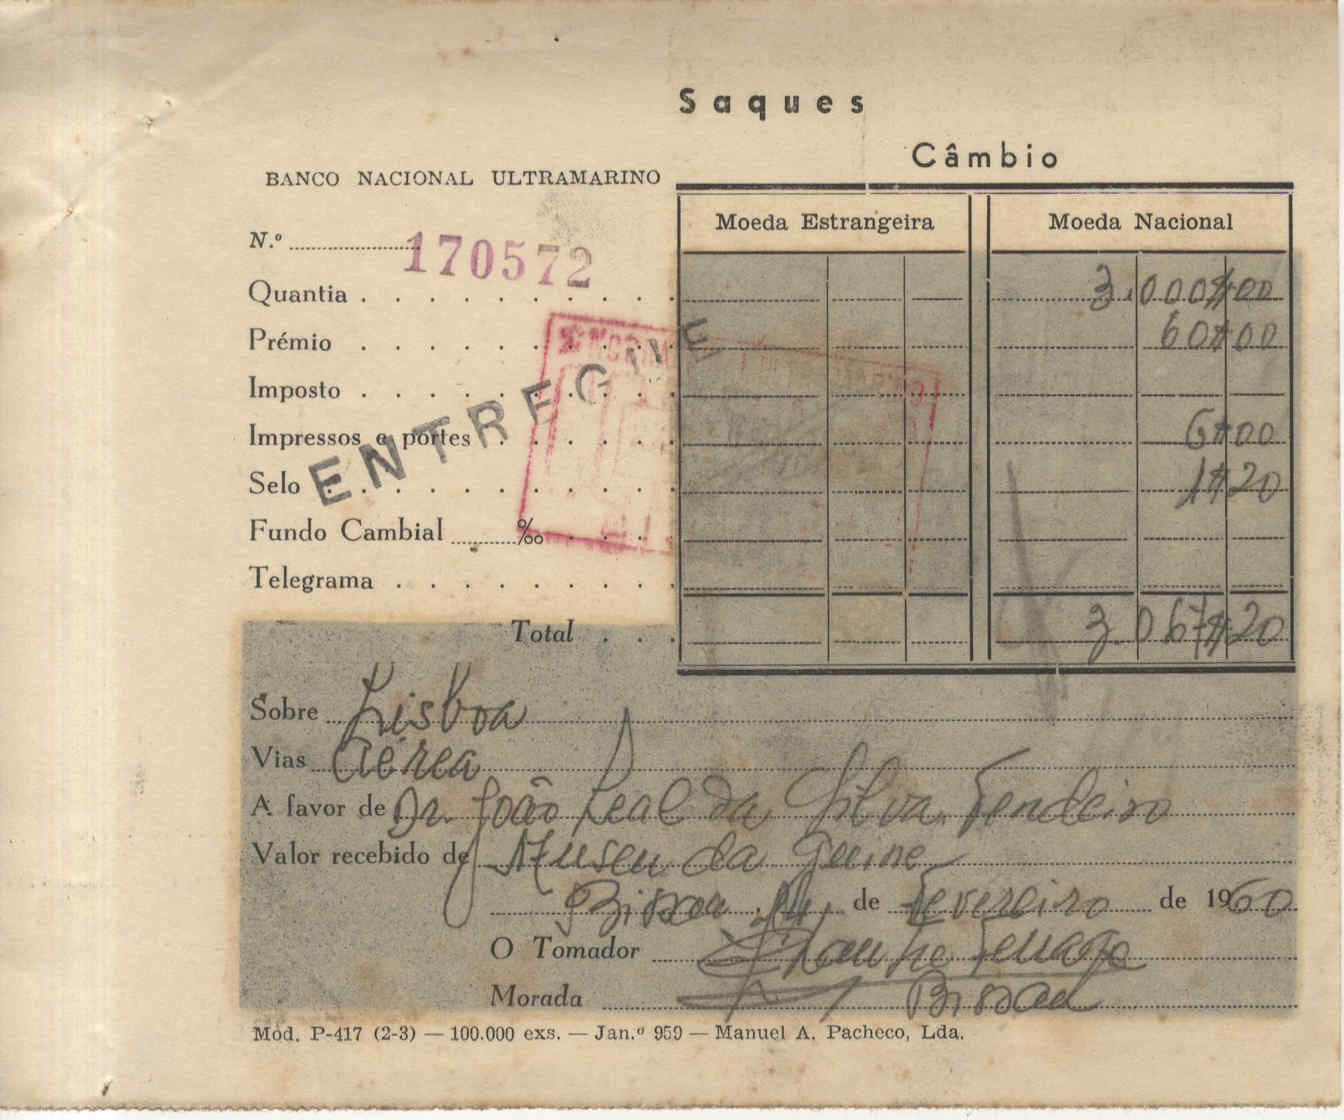 Saques
Câmbio
BANCO NACIONAL ULTRAMARINO
Moeda Estrangeira Moeda Nacional
N.º 170572
Quantia 3.000$00
Prémio 60$00
Imposto
Impressos e portes 6$00
ENTREGUE
Selo 1$20
Fundo Cambial ‰
Telegrama
Total 3.067$20
Sobre Lisboa
Vias Aérea
A favor de Dr. João Leal da Silva Tendeiro
Valor recebido de Museu da Guiné
Bissau de Fevereiro de 1960
O Tomador
Morada Bissau
Mod. P-417 (2-3) — 100.000 exs. — Jan.º 959 — Manuel A. Pacheco, Lda.